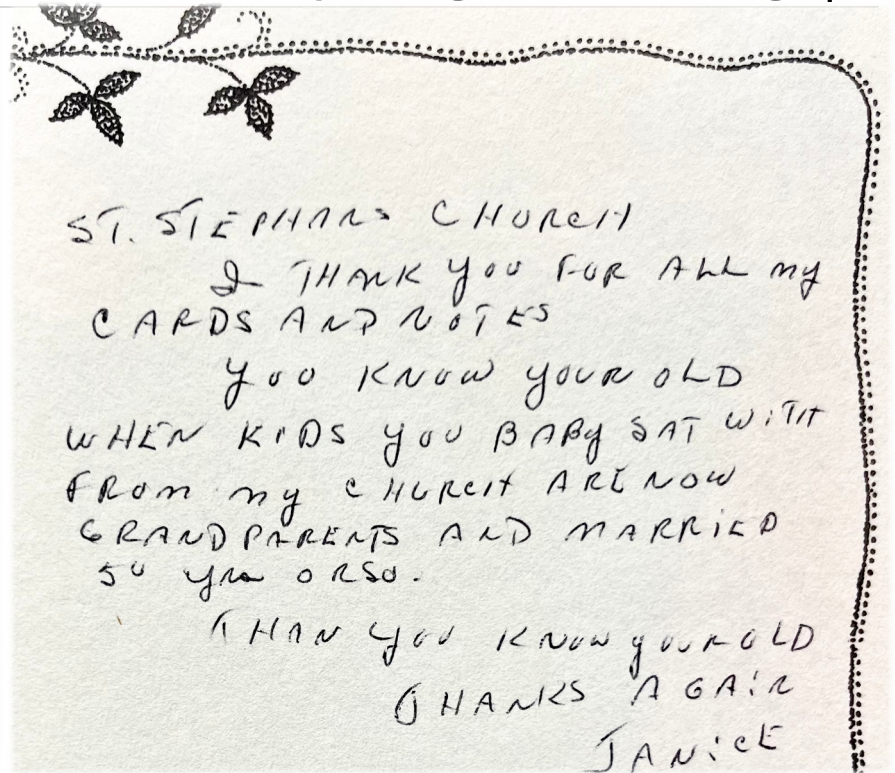 ST. STEPHANS CHURCH
I THANK YOU FOR ALL my
CARDS AND NOTES
YOU KNOW YOUR OLD
WHEN KIDS YOU BABY SAT WITH
FROM my CHURCH ARE NOW
GRANDPARENTS AND MARRIED
50 yrs ORSO.
THAN YOU KNOW YOUR OLD
THANKS AGAIN
JANICE